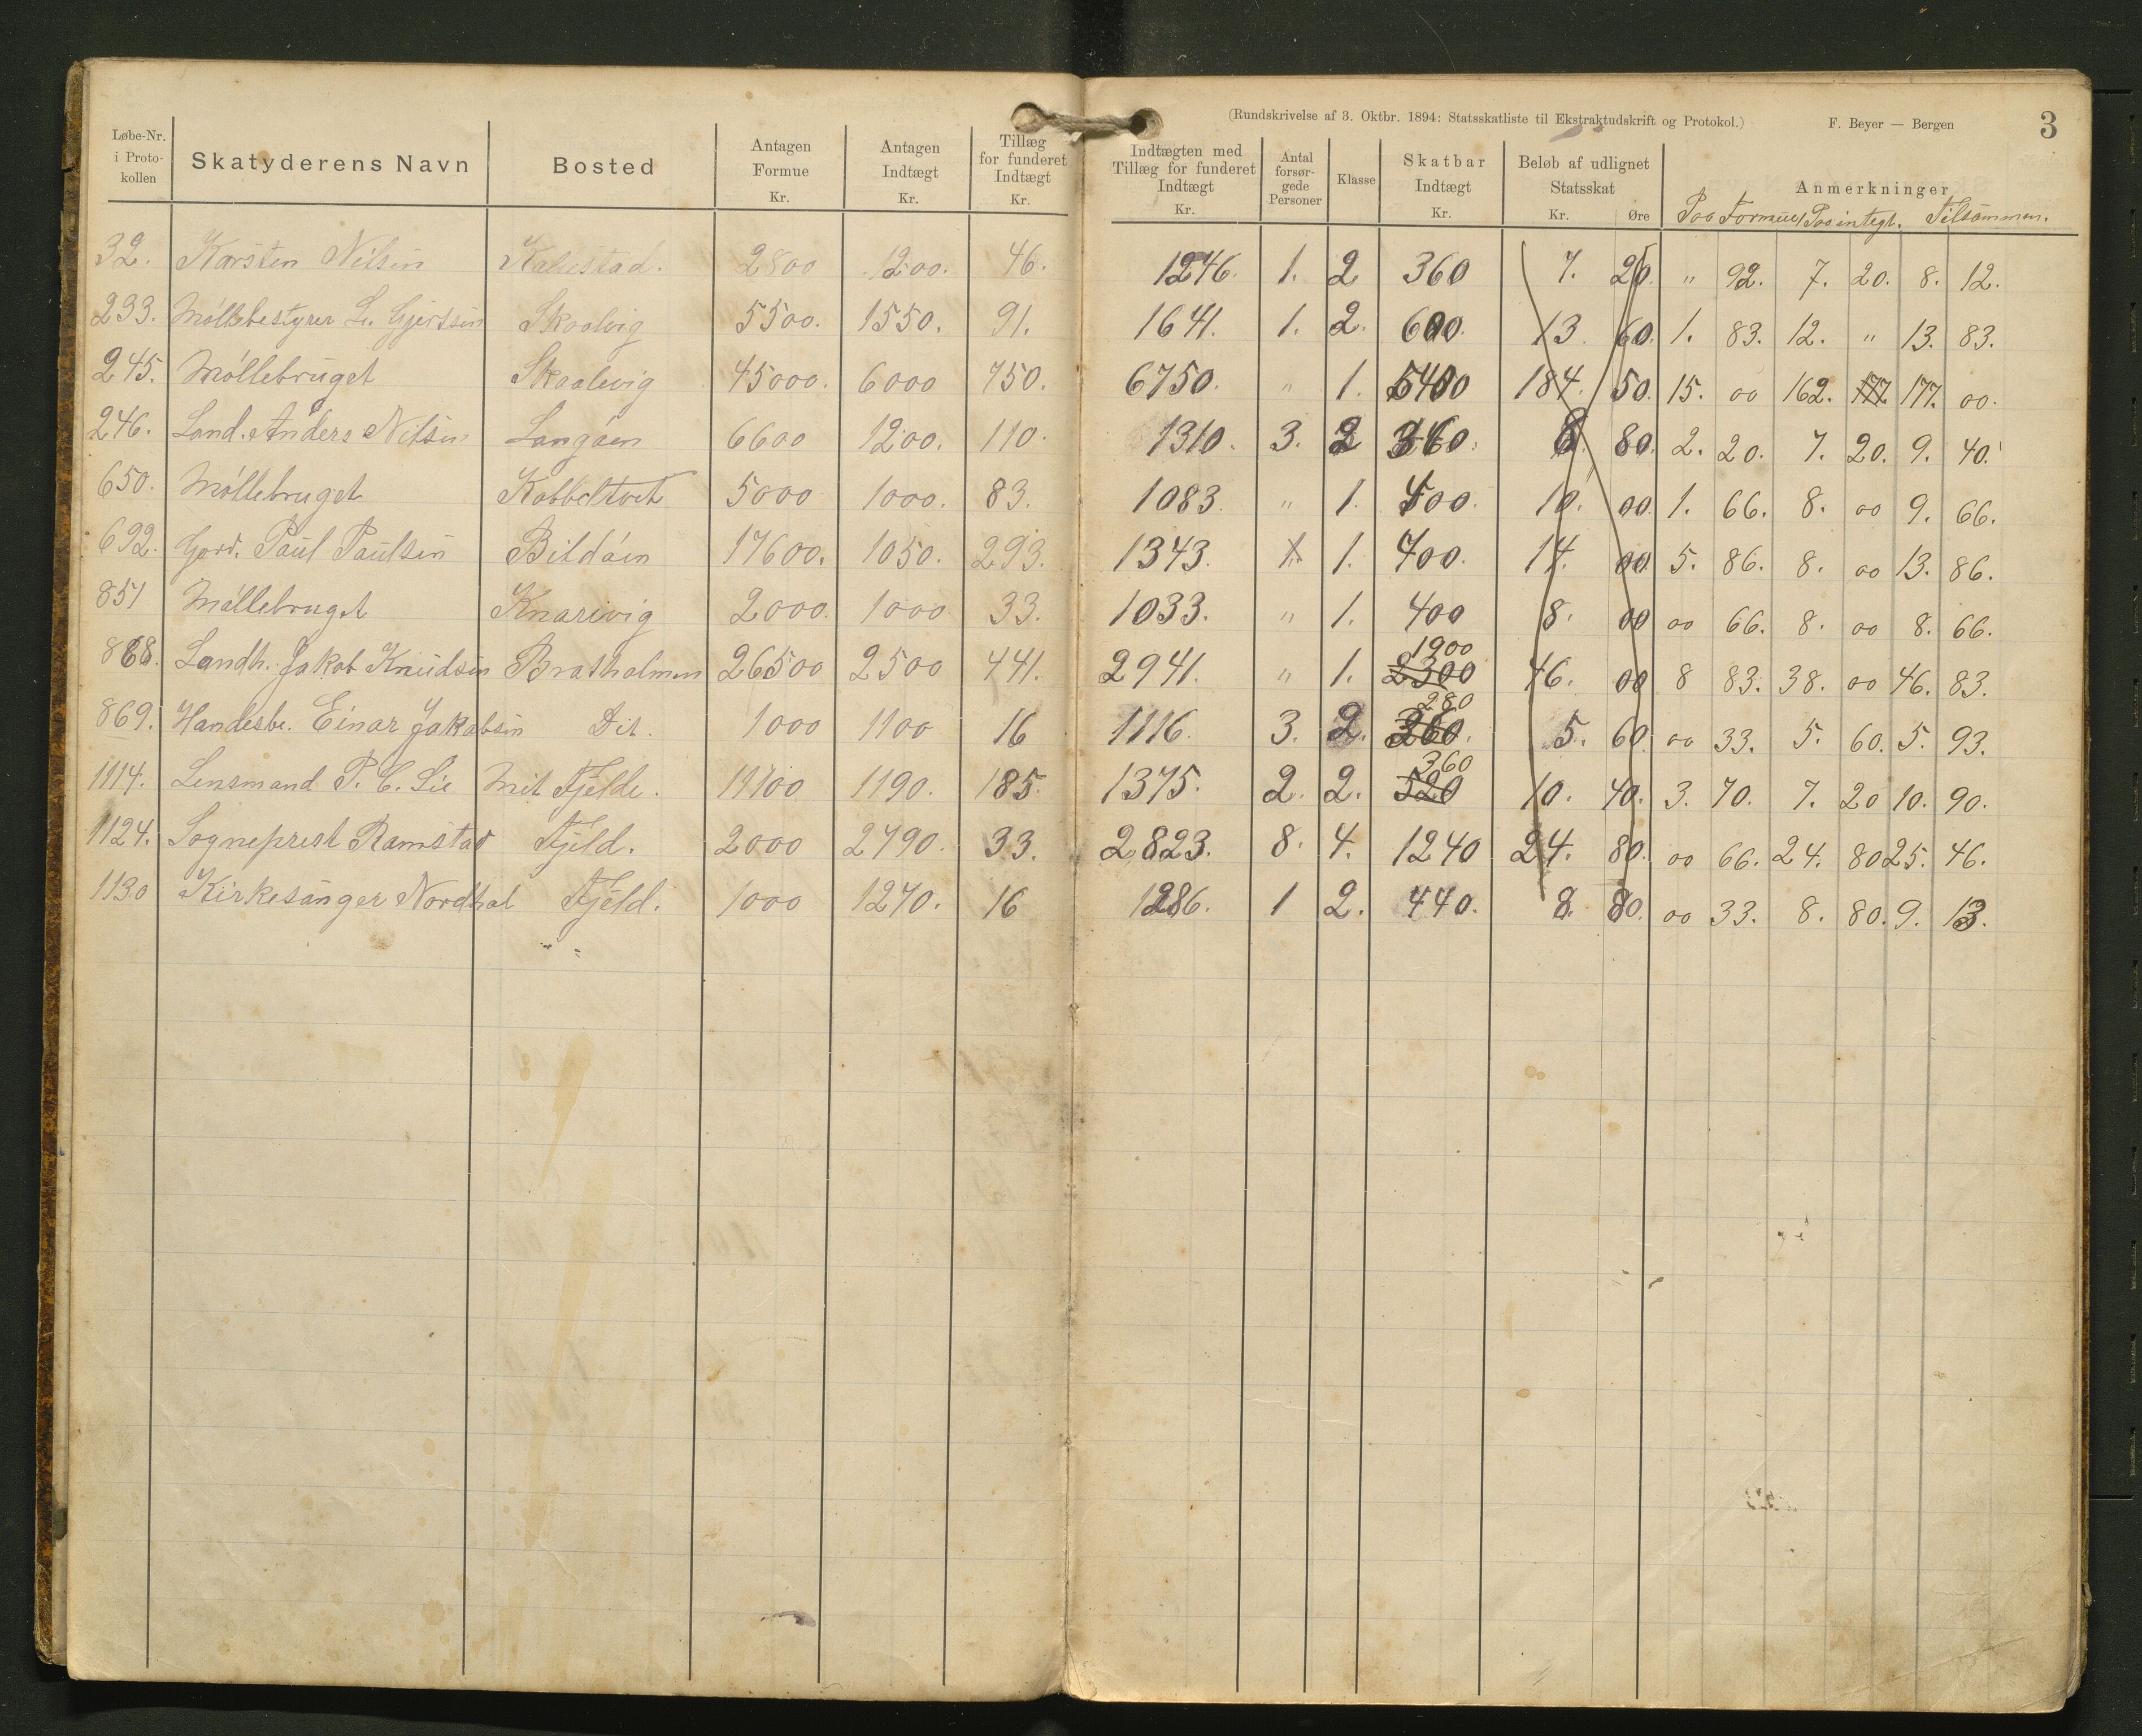 (Rundskrivelse af 3. Oktbr. 1894: Statsskatliste til Ekstraktudskrift og Protokol.) F. Beyer — Bergen 3
Løbe-Nr. i Proto-kollen Skatyderens Navn Bosted Antagen Formue Kr. Antagen Indtægt Kr. Tillæg for funderet Indtægt Kr. Indtægten med Tillæg for funderet Indtægt Kr. Antal forsør-gede Personer Klasse Skatbar Indtægt Kr. Beløb af udlignet Statsskat Kr. Øre Anmerkninger
Paa Formue Paa integt. Tilsammen.
32. Karsten Nilsen Kallestad. 2800 1200. 46. 1246. 1. 2 360 7. 20. " 92. 7. 20. 8. 12.
233. Møllebestyrer L. Gjertsen Skaalvig 5500. 1550. 91. 1641. 1. 2. 600. 13 60. 1. 83. 12. " 13. 83.
245. Møllebruget Skaalevig 45000. 6000 750. 6750. " 1. 5400 184. 50. 15. 00 162. 177. 177. 00.
246. Land. Anders Nilsen Langøen 6600 1200. 110. 1310. 3. 2 360. 8. 80. 2. 20. 7. 20. 9. 40.
650. Møllebruget Kobbeltvet 5000 1000. 83. 1083. " 1. 400. 10. 00. 1. 66. 8. 00 9. 66.
692. Gord. Paul Paulsen Bildøen 17600. 1050. 293. 1343. 1. 1. 400. 14. 00 5. 86. 8. 00 13. 86.
851 Møllebruget Knarivig 2000. 1000 33. 1033. " 1. 400 8. 00 00 66. 8. 00 8. 66.
868. Landh. Jakob Knudsen Bratholmen 26500 2500 441. 2941. " 1. 2300 1900 46. 00 8 83. 38. 00 46. 83.
869. Handesbe. Einar Jakobsen Dit. 1000 1100 16 1116. 3. 2. 280 5. 60 00 33. 5. 60. 5. 93.
1114. Lensmand P. C. Lie Mit Fjelde. 11100 1190. 185. 1375. 2. 2. 520 360 10. 40. 3. 70. 7. 20 10. 90.
1124. Sogneprest Ramstad Fjeld. 2000 2790. 33. 2823. 8. 4. 1240 24. 80. 00 66. 24. 80 25. 46.
1130 Kirkesanger Nordhal Fjeld. 1000 1270. 16 1286. 1 2. 440. 8. 80. 00 33. 8. 80. 9. 13.